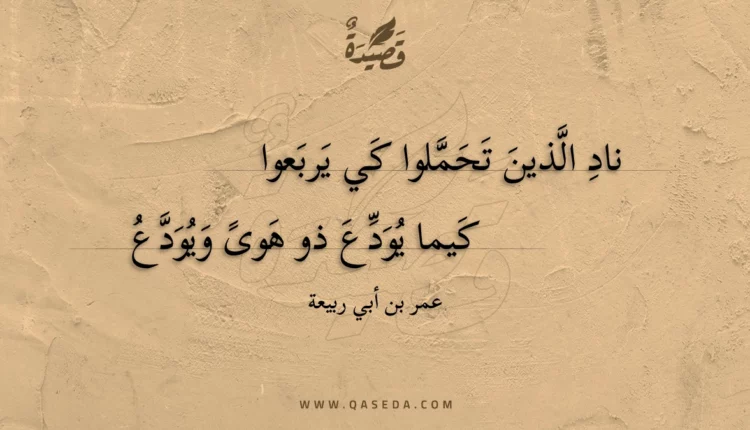 قَصِيدَةٌ
نادِ الَّذينَ تَحَمَّلوا كَي يَربَعوا
كَيما يُوَدِّعَ ذو هَوىً وَيُوَدَّعُ
عمر بن أبي ربيعة
WWW.QASEDA.COM